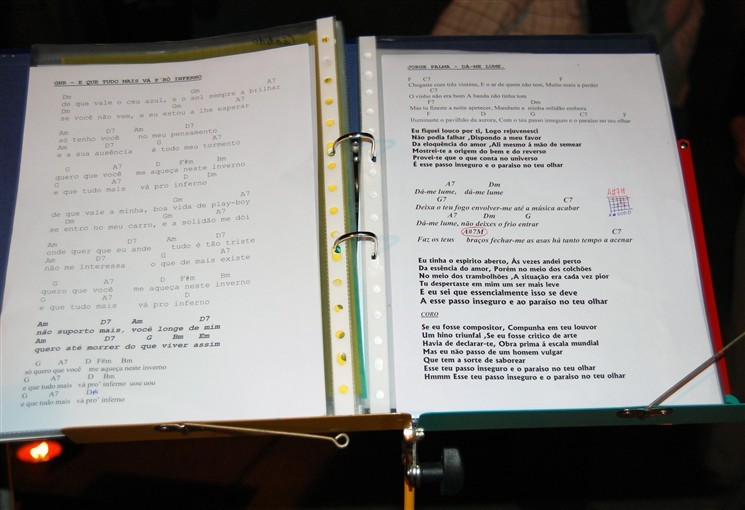 GNR - E QUE TUDO MAIS VÁ P'RÓ INFERNO
Dm Gm A7
de que vale o ceu azul, e o sol sempre a brilhar
Dm Gm A7
se você não vem, e eu estou a lhe esperar
Am D7 Am D7
só tenho você no meu pensamento
Am D7
e a sua ausência é todo meu tormento
G A7 D F#m Bm
quero que você me aqueça neste inverno
G A7 D Dm
e que tudo mais vá pro inferno
Gm A7
de que vale a minha, boa vida de play-boy
Dm Gm A7
se entro no meu carro, e a solidão me dói
Am D7 Am D7
onde quer que eu ande tudo é tão triste
Am D7
não me interessa o que de mais existe
G A7 D F#m Bm
quero que você me aqueça neste inverno
G A7 D
e que tudo mais vá pro inferno
Am D7 Am D7
não suporto mais, você longe de mim
Am D7 G Bm Em
quero até morrer do que viver assim
G A7 D F#m Bm
só quero que você me aqueça neste inverno
G A7 D Bm
e que tudo mais vá pro' inferno uou uou
G A7 D#
e que tudo mais vá pro' inferno
JORGE PALMA - DÁ-ME LUME.
F C7 F
Chegaste com três vinténs, E o ar de quem não tem, Muito mais a perder
C7
O vinho não era bom A banda não tinha tom
F7 Dm
Mas tu fizeste a noite apetecer, Mandaste a minha solidão embora
F D G C7
Iluminaste o pavilhão da aurora, Com o teu passo inseguro e o paraíso no teu olhar
Eu fiquei louco por ti, Logo rejuvenesci
Não podia falhar ,Dispondo a meu favor
Da eloquência do amor ,Ali mesmo à mão de semear
Mostrei-te a origem do bem e do reverso
Provei-te que o que conta no universo
É esse passo inseguro e o paraíso no teu olhar
A7 Dm
Dá-me lume, dá-me lume
G7 C7
Deixa o teu fogo envolver-me até a música acabar
A7 Dm G
Dá-me lume, não deixes o frio entrar
A#7M C7
Faz os teus braços fechar-me as asas há tanto tempo a acenar
A#7M
Eu tinha o espirito aberto, Às vezes andei perto
Da essência do amor, Porém no meio dos colchões
No meio dos trambolhões ,A situação era cada vez pior
Tu despertaste em mim um ser mais leve
E eu sei que essencialmente isso se deve
A esse passo inseguro e ao paraíso no teu olhar
CORO
Se eu fosse compositor, Compunha em teu louvor
Um hino triunfal ,Se eu fosse critico de arte
Havia de declarar-te, Obra prima à escala mundial
Mas eu não passo de um homem vulgar
Que tem a sorte de saborear
Esse teu passo inseguro e o paraíso no teu olhar
Hmmm Esse teu passo inseguro e o paraíso no teu olhar